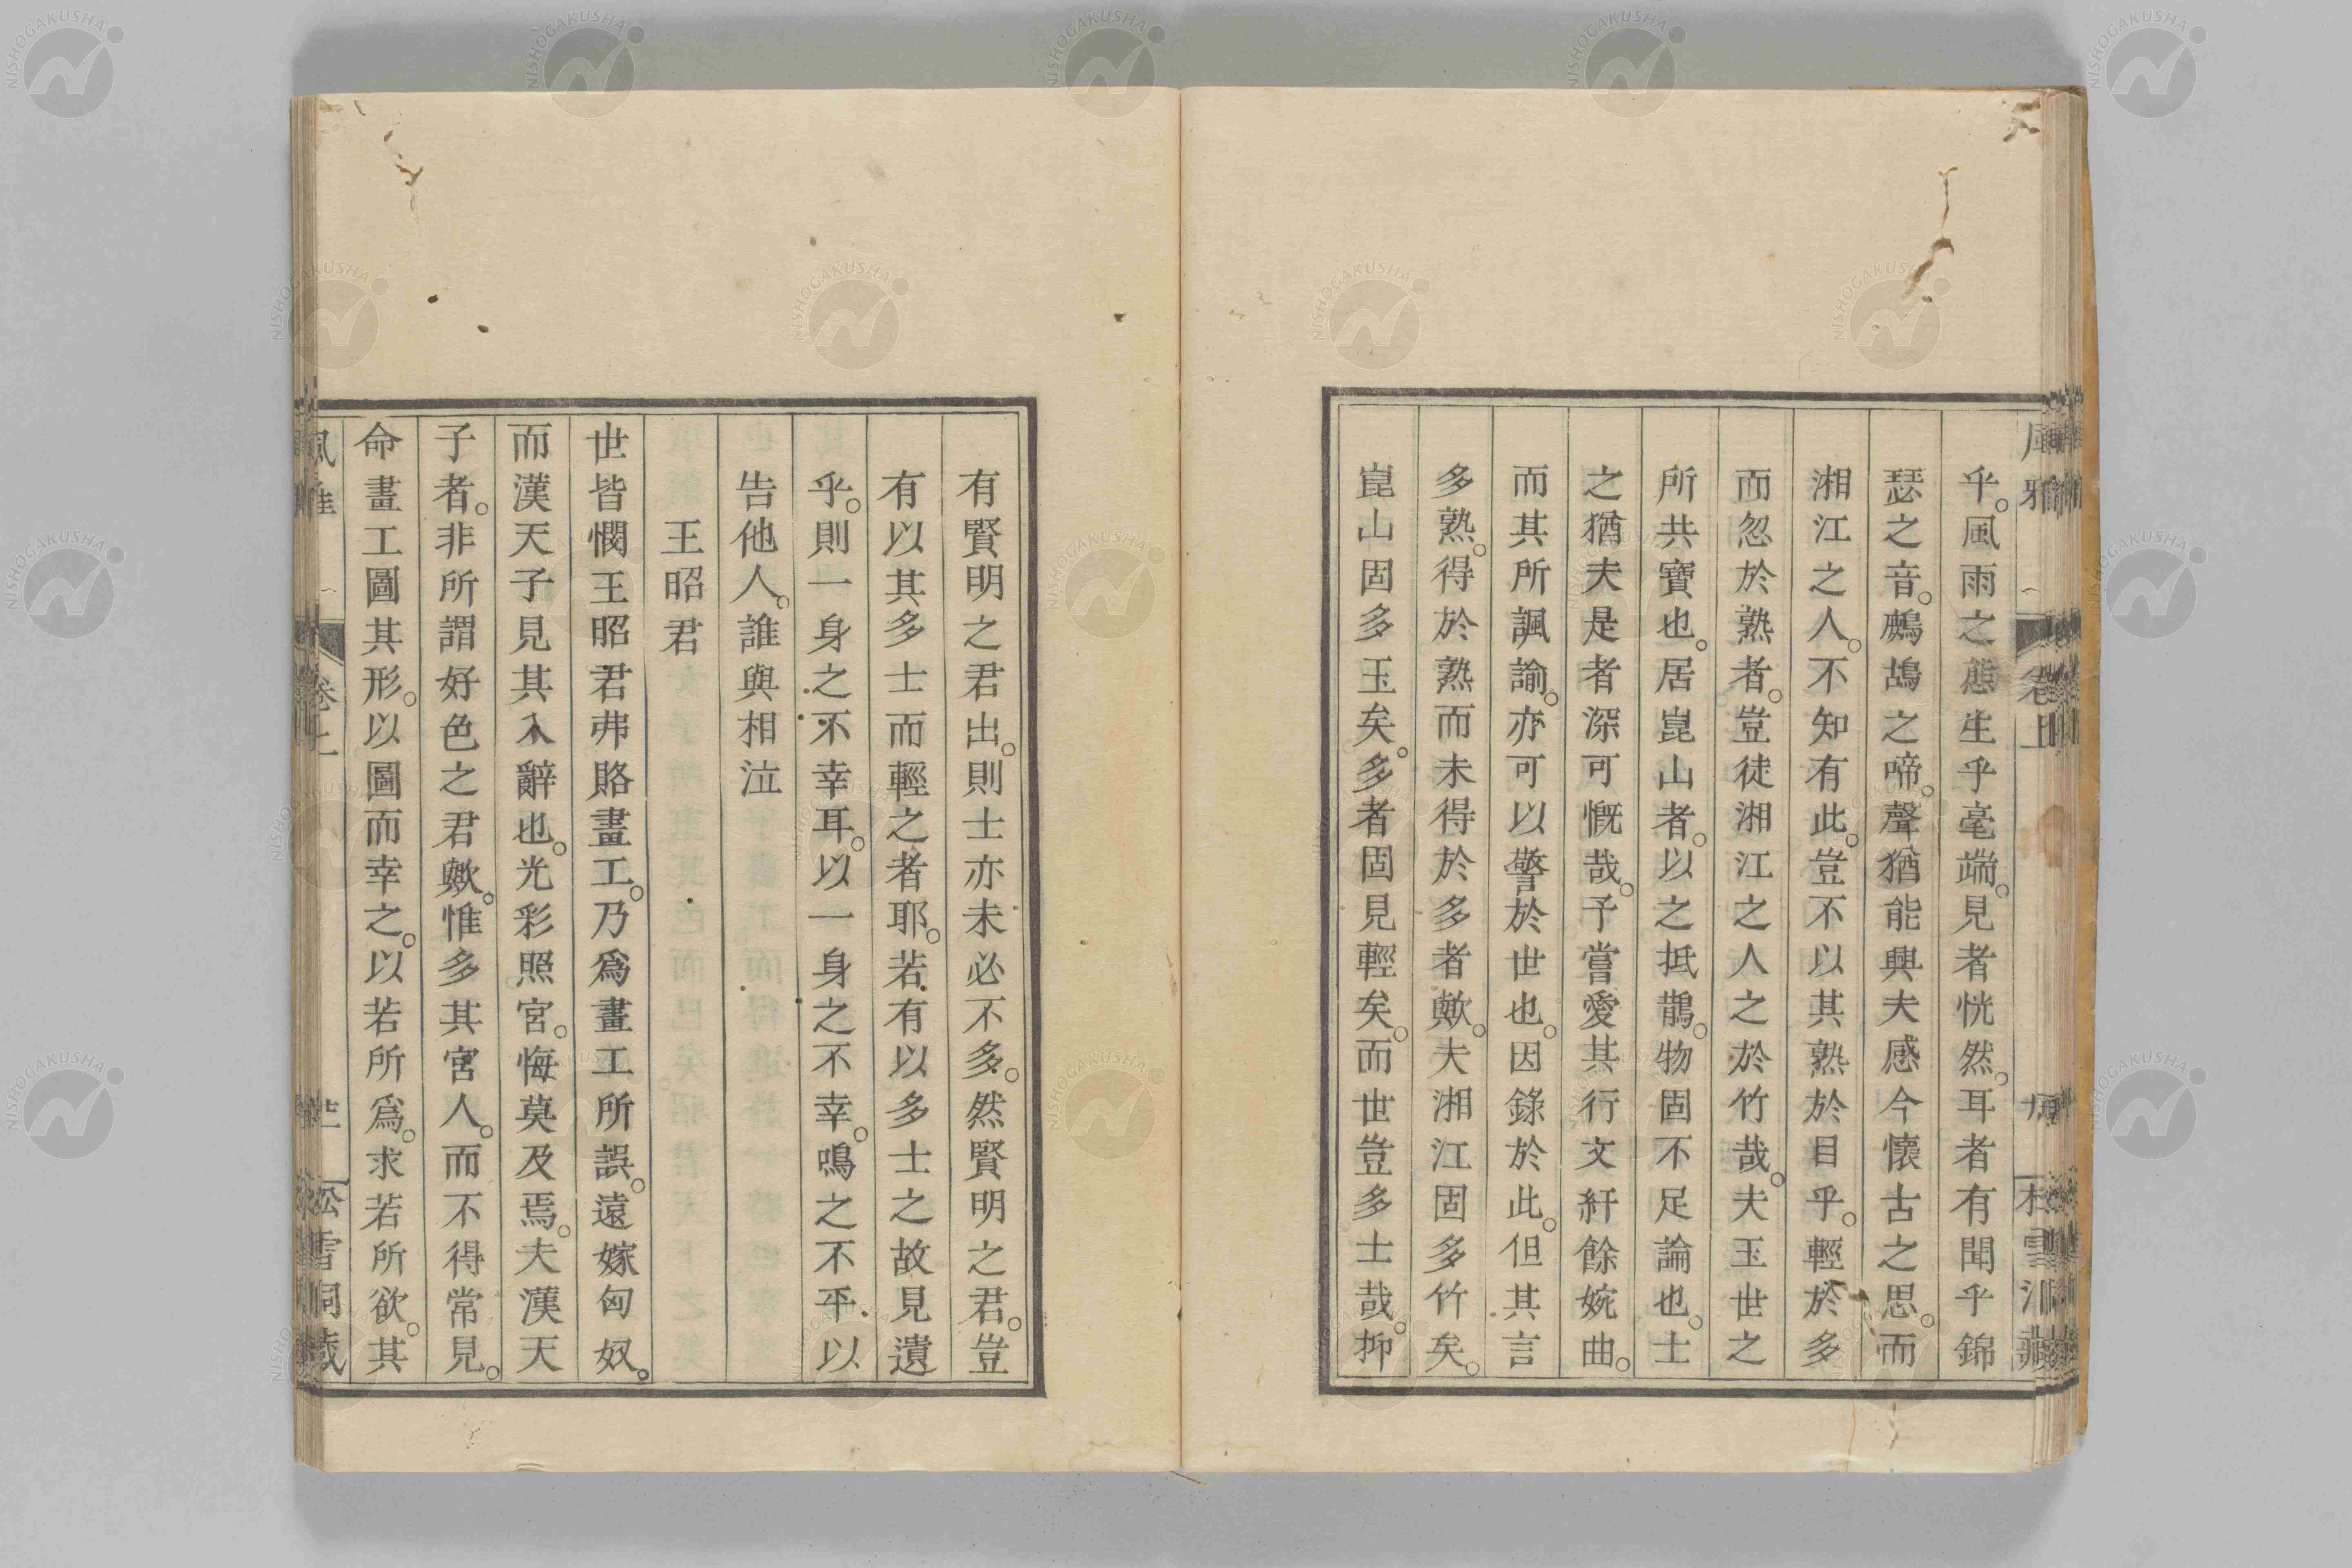 乎。風雨之態生乎毫端。見者恍然。耳者有聞乎錦
瑟之音。鷓鴣之啼。聲猶能興夫感今懷古之思。而
湘江之人。不知有此。豈不以其熟於目乎。輕於多
而忽於熟者。豈徒湘江之人之於竹哉。夫玉世之
所共寶也。居崑山者。以之抵鵲。物固不足論也。士
之猶夫是者深可慨哉。予嘗愛其行文紆餘婉曲。
而其所諷諭。亦可以警於世也。因錄於此。但其言
多熟。得於熟而未得於多者歟。夫湘江固多竹矣。
崑山固多玉矣。多者固見輕矣。而世豈多士哉。抑
有賢明之君出。則士亦未必不多。然賢明之君。豈
有以其多士而輕之者耶。若有以多士之故見遺
乎。則一身之不幸耳。以一身之不幸。鳴之不平以
告他人。誰與相泣
王昭君
世皆憫王昭君弗賂畫工。乃爲畫工所誤。遠嫁匈奴。
而漢天子見其入辭也。光彩照宮。悔莫及焉。夫漢天
子者。非所謂好色之君歟。惟多其宮人。而不得常見。
命畫工圖其形。以圖而幸之。以若所爲。求若所欲。其
卷上